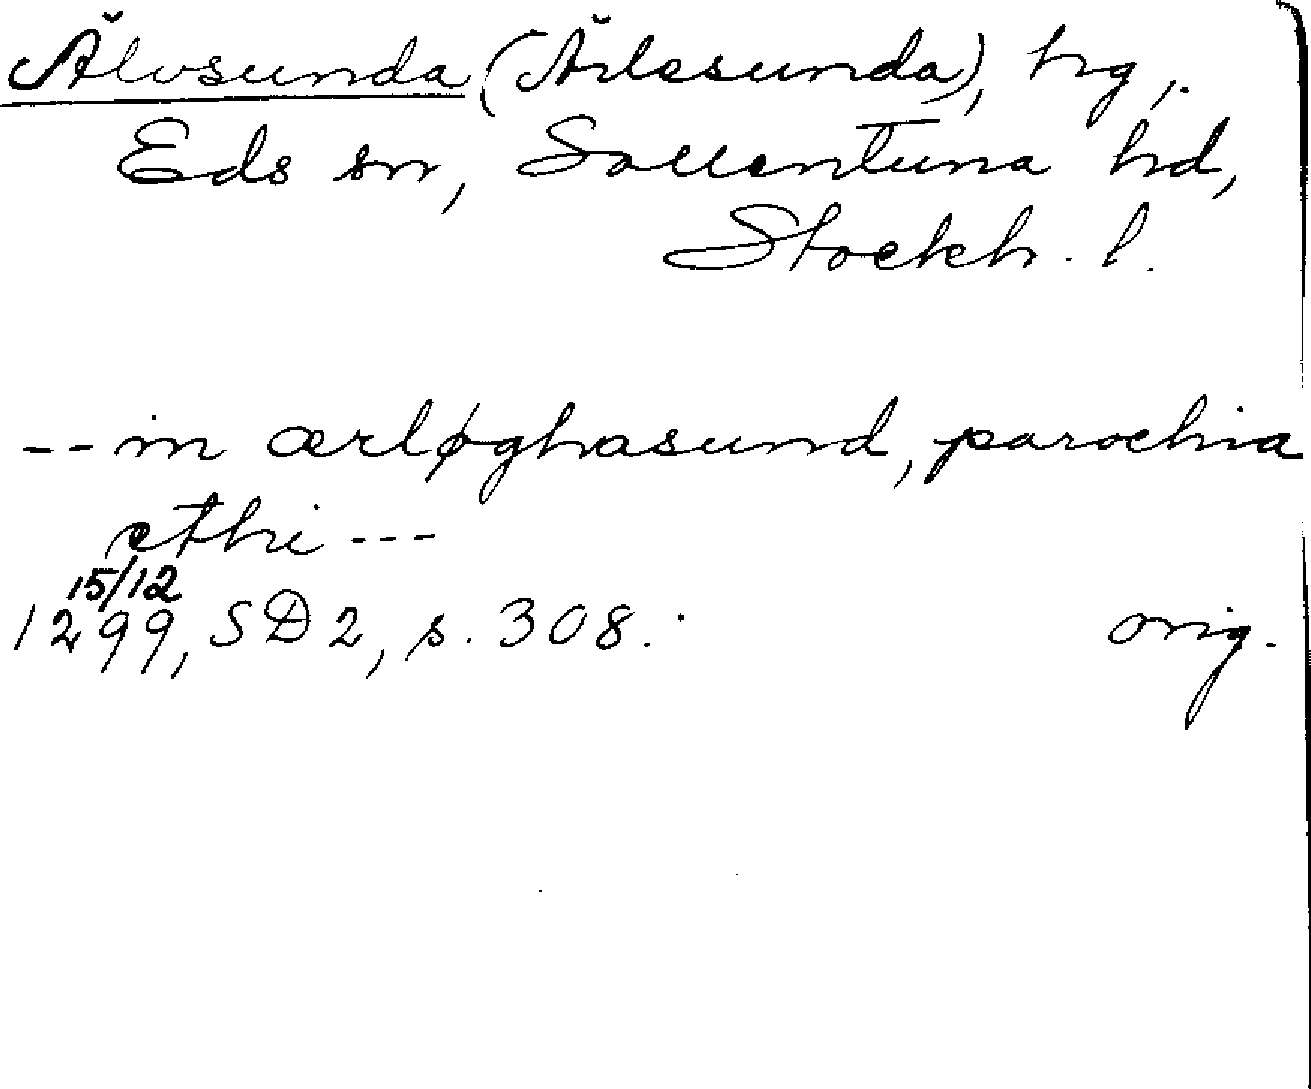 Älvsunda (Ärlesunda), hg,
Eds sn, Sollentuna hd,
Stockh. l.
-- in ærløghasund, parochia
ethi ---
15/12
1299, SD 2, s. 308. orig.